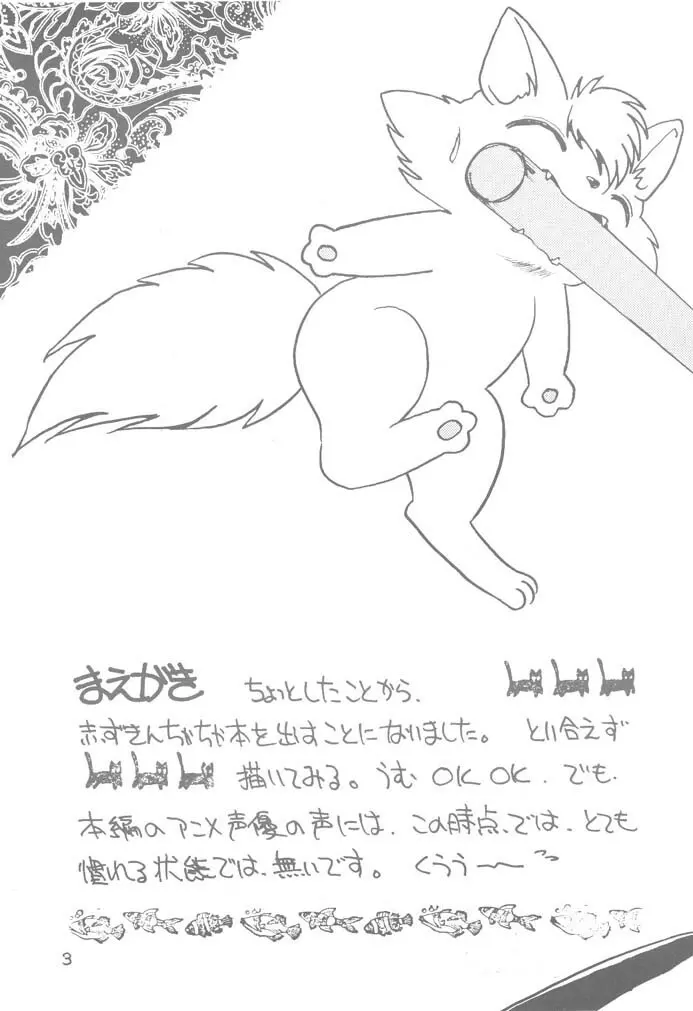 まえがき ちょっとしたことから、
赤ずきんちゃちゃ本を出すことになりました。 とり合えず
描いてみる。うむ OK OK、でも、
本編のアニメ声優の声には、この時点では、とても
慣れる状態では、無いです。 くうう〜〜
3